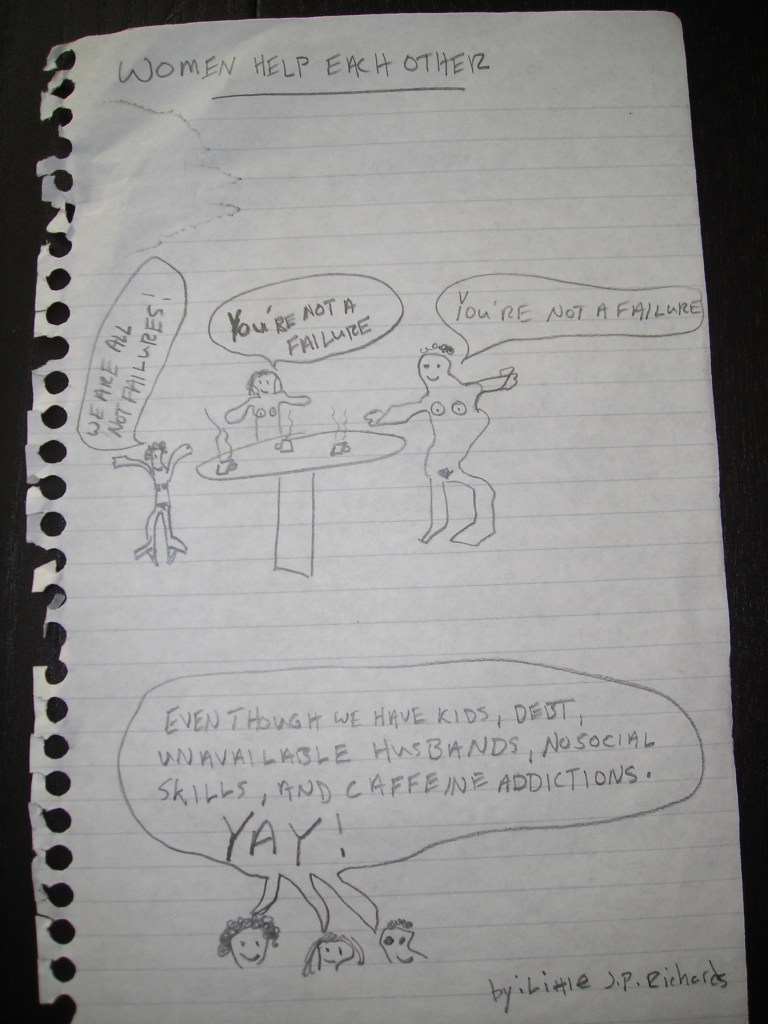 WOMEN HELP EACH OTHER
WE ARE ALL
NOT FAILURES!
YOU'RE NOT A
FAILURE
YOU'RE NOT A FAILURE
EVEN THOUGH WE HAVE KIDS, DEBT,
UNAVAILABLE HUSBANDS, NO SOCIAL
SKILLS, AND CAFFEINE ADDICTIONS.
YAY!
by: Little J.P. Richards